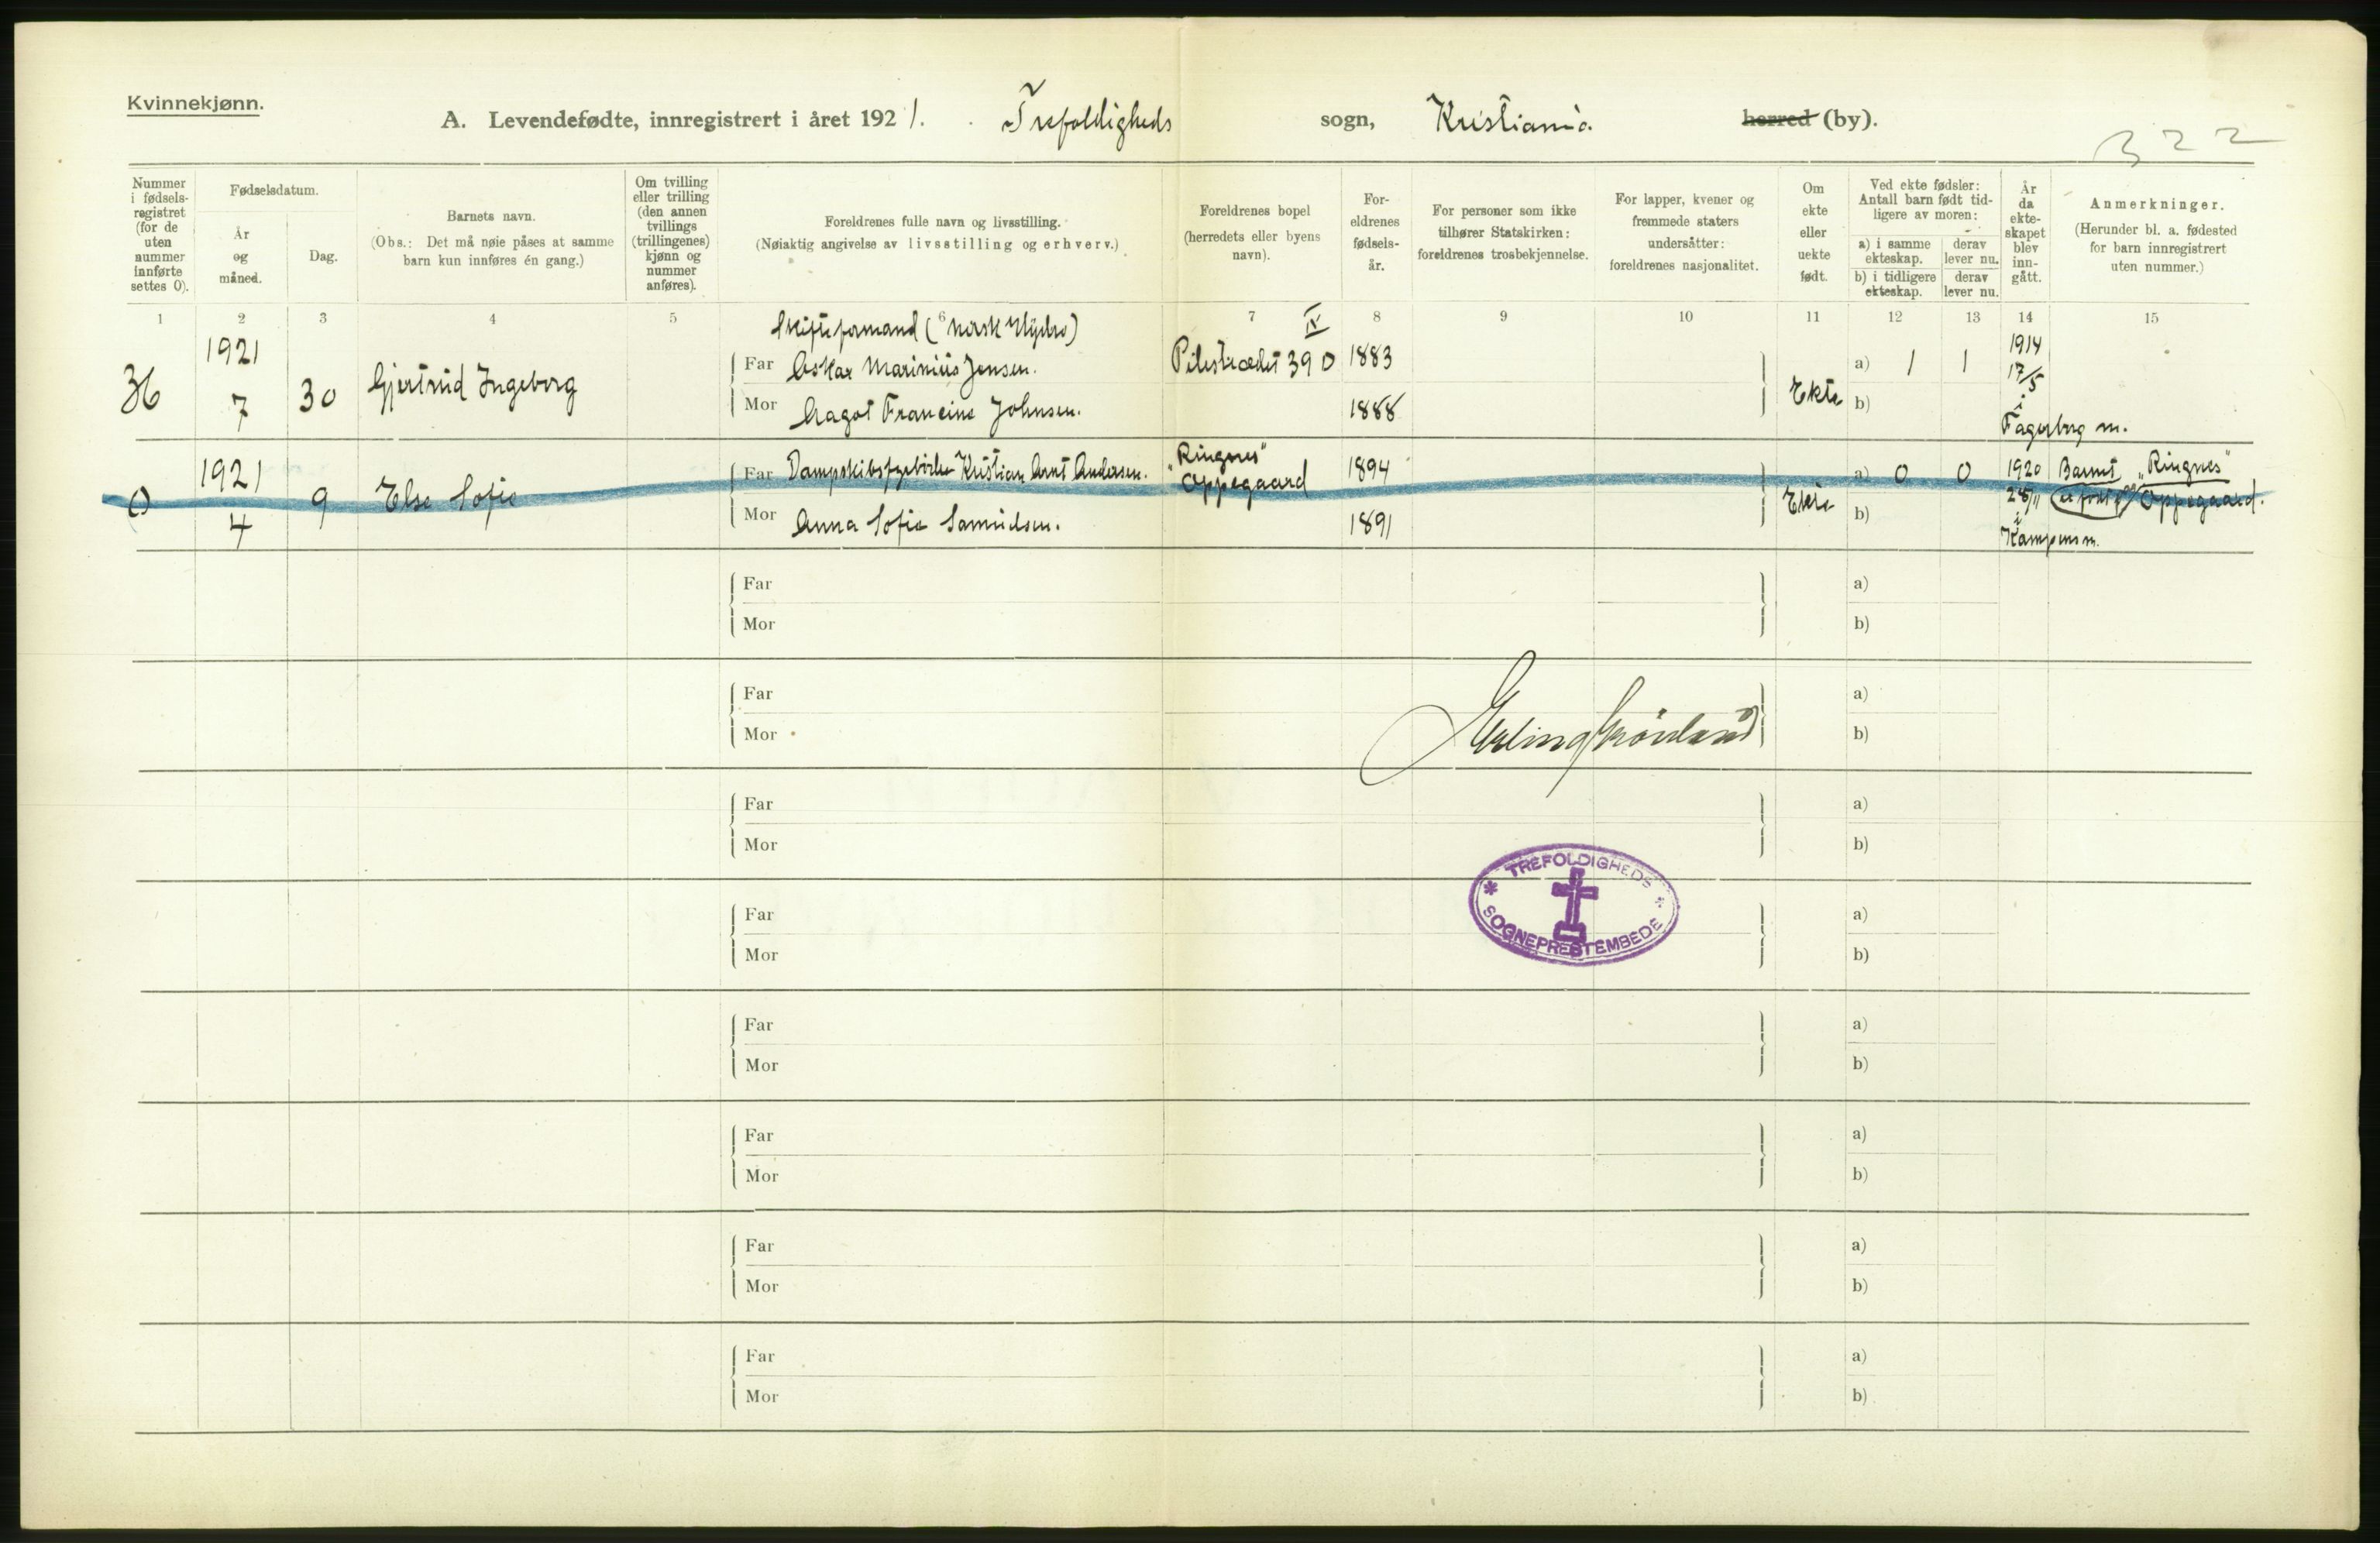 Kvinnekjønn.
A. Levendefødte, innregistrert i året 1921. Trefoldigheds sogn, Kristiania herred (by).
322
Nummer i fødsels-registret (for de uten nummer innførte settes 0).
Fødselsdatum.
År og måned.
Dag.
Barnets navn.
(Obs.: Det må nøie påses at samme barn kun innføres én gang.)
Om tvilling eller trilling (den annen tvillings (trillingenes) kjønn og nummer anføres).
Foreldrenes fulle navn og livsstilling.
(Nøiaktig angivelse av livsstilling og erhverv.)
Foreldrenes bopel (herredets eller byens navn).
For-eldrenes fødsels-år.
For personer som ikke tilhører Statskirken: foreldrenes trosbekjennelse.
For lapper, kvener og fremmede staters undersåtter: foreldrenes nasjonalitet.
Om ekte eller uekte født.
Ved ekte fødsler: Antall barn født tid-ligere av moren:
a) i samme ekteskap.
derav lever nu.
b) i tidligere ekteskap.
derav lever nu.
År da ekte-skapet blev inn-gått.
Anmerkninger.
(Herunder bl. a. fødested for barn innregistrert uten nummer.)
1 2 3 4 5 6 7 8 9 10 11 12 13 14 15
Skifteformand (Norsk Hydro) IV
36 1921 7 30 Gjertrud Ingeborg
Far Oskar Marinius Jensen. Pilestrædet 39 1883 Ekte a) 1 1 1914 17/5
Mor Aagot Francine Johnsen. 1888 b) i Fagerborg m.
0 1921 4 9 Else Sofie
Far Dampskibsfyrbøter Kristian Arnt Andersen. "Ringnes" Oppegaard 1894 Ekte a) 0 0 1920 28/11 Barnet "Ringnes" er født på Oppegaard.
Mor Anna Sofie Samuelsen. 1891 b) i Kampens m.
Far a)
Mor b)
Far a)
Mor b)
Erling Grönland
Far a)
Mor b)
TREFOLDIGHEDS
SOGNEPRESTEMBEDE
Far a)
Mor b)
Far a)
Mor b)
Far a)
Mor b)
Far a)
Mor b)
Far a)
Mor b)